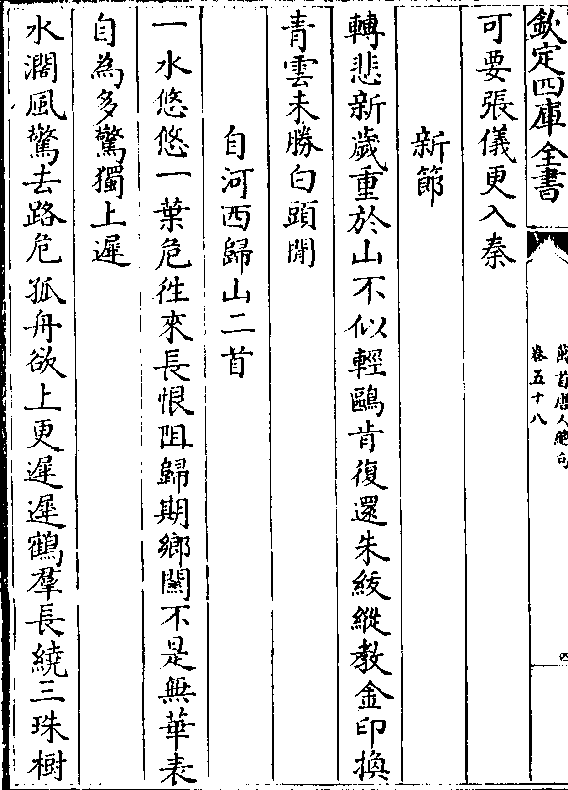 欽定四庫全書
萬首唐人絶句
卷五十八
四
可要張儀更入秦
新節
轉悲新歲重於山不似輕鷗肯復還朱紱縱教金印換
青雲未勝白頭閒
自河西歸山二首
一水悠悠一葉危徃來長恨阻歸期鄉關不是無華表
自為多驚獨上遲
水濶風驚去路危孤舟欲上更遲遲鶴羣長繞三珠樹